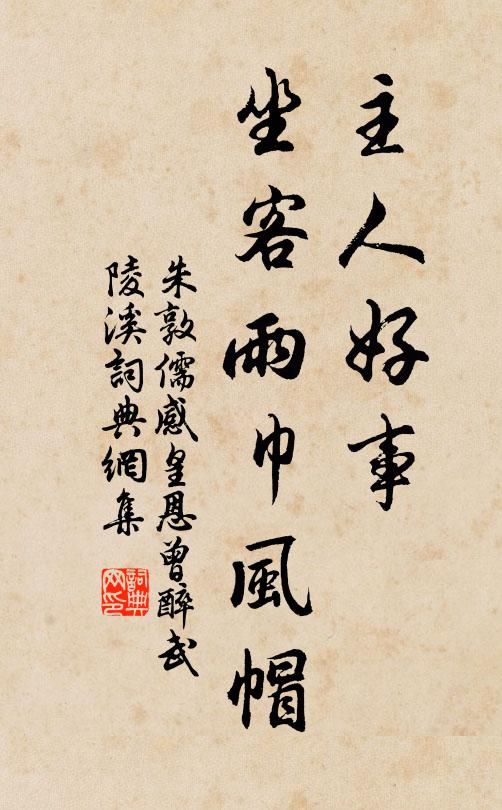 主人好事
坐客雨巾風帽
朱敦儒感皇恩曾醉武
陵溪詞典網集
詞典
网印